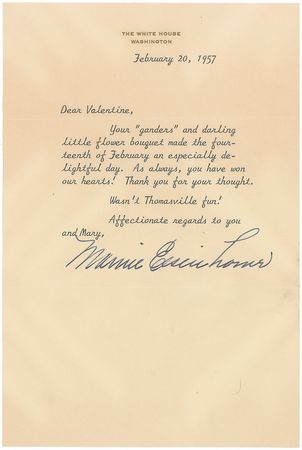 THE WHITE HOUSE
WASHINGTON
February 20, 1957
Dear Valentine,
Your "ganders" and darling
little flower bouquet made the four-
teenth of February an especially de-
lightful day. As always, you have won
our hearts! Thank you for your thought.
Wasn't Thomasville fun!
Affectionate regards to you
and Mary,
Mamie Eisenhower